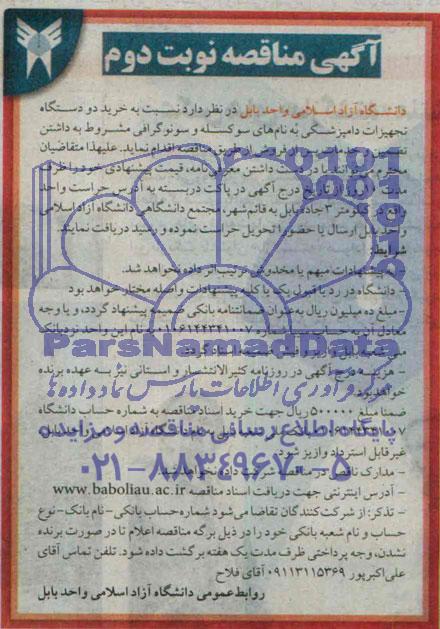 آگهی مناقصه نوبت دوم
دانشگاه آزاد اسلامی واحد بابل در نظر دارد نسبت به خرید دو دستگاه
تجهیزات دامپزشکی به نام‌های سوکسله و سونوگرافی مشروط به داشتن
خدمات پس از فروش از طریق مناقصه اقدام نماید. علیهذا متقاضیان
محترم می‌توانند با در دست داشتن معرفی‌نامه، قیمت پیشنهادی خود را ظرف
مدت ۱۰ روز از تاریخ درج آگهی در پاکت دربسته به آدرس حراست واحد
واقع در کیلومتر ۳ جاده بابل به قائم‌شهر، مجتمع دانشگاهی دانشگاه آزاد اسلامی
واحد بابل ارسال یا حضورا تحویل حراست نموده و رسید دریافت نمایند.
شرایط:
- به پیشنهادات مبهم یا مخدوش ترتیب اثر داده نخواهد شد.
- دانشگاه در رد یا قبول یک یا کلیه پیشنهادات واصله مختار خواهد بود
- مبلغ ده میلیون ریال به عنوان ضمانتنامه بانکی ضمیمه پیشنهاد گردد، و یا وجه
معادل آن به حساب شماره ۰۱۰۶۱۴۴۳۴۱۰۰۷ به نام این واحد نزد بانک
ملی شعبه بابل واریز و فیش ضمیمه اسناد گردد.
- هزینه درج آگهی در روزنامه کثیرالانتشار و استانی نیز به عهده برنده
خواهد بود.
ضمنا مبلغ ۵۰۰۰۰۰ ریال جهت خرید اسناد مناقصه به شماره حساب دانشگاه
غیرقابل استرداد واریز شود.
- مدارک ناقص در مناقصه شرکت داده نخواهد شد.
- آدرس اینترنتی جهت دریافت اسناد مناقصه www.baboliau.ac.ir
- تذکر: از شرکت‌کنندگان تقاضا می‌شود شماره حساب بانکی - نام بانک - نوع
حساب و نام شعبه بانکی خود را در ذیل برگه مناقصه اعلام تا در صورت برنده
نشدن، وجه پرداختی ظرف مدت یک هفته برگشت داده شود. تلفن تماس آقای
علی‌اکبرپور ۰۹۱۱۳۱۱۵۳۶۹ آقای فلاح
روابط عمومی دانشگاه آزاد اسلامی واحد بابل
ParsNamadData
فرآوری اطلاعات پارس نماد داده‌ها
پایگاه اطلاع رسانی مناقصه و مزایده
۰۲۱-۸۸۳۴۹۶۷۰-۵